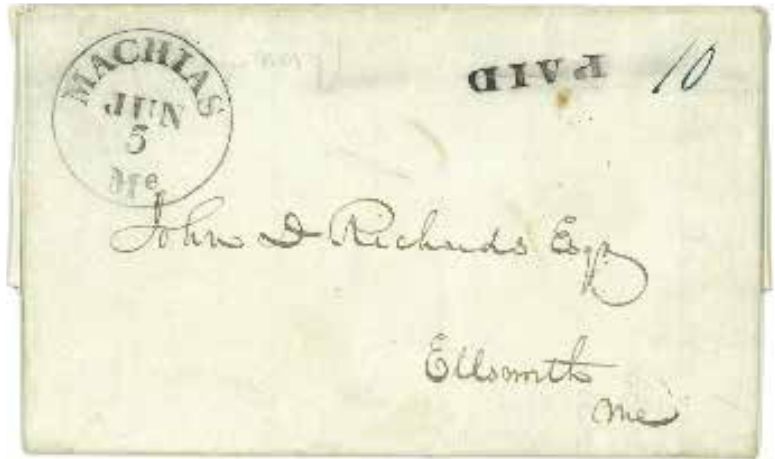 MACHIAS
JUN
5
Me
PAID 10
John D Richards Esq
Ellsworth
Me